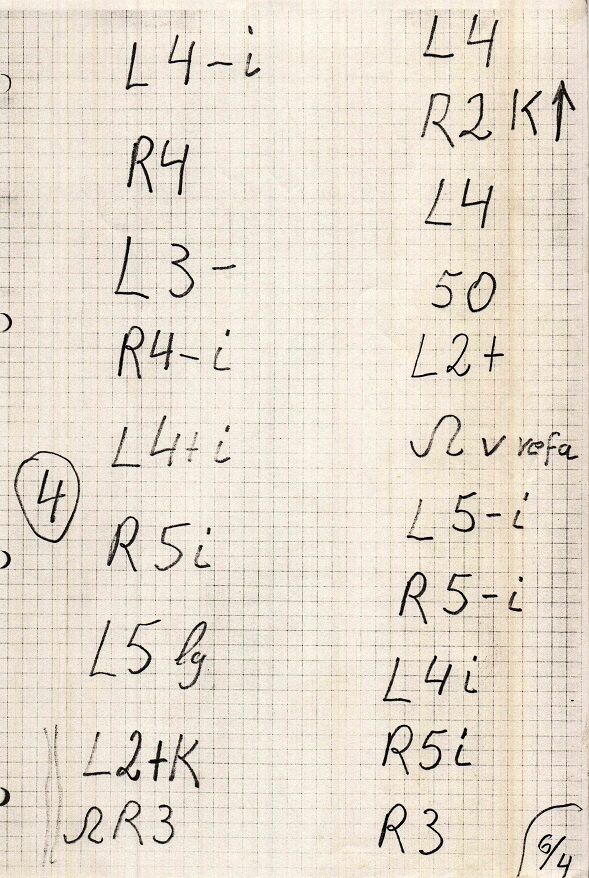 L4-i
R4
L3-
R4-i
L4+i
4
R5i
L5 lg
L2+K
ΩR3
L4
R2 K↑
L4
50
L2+
Ω v refa
L5-i
R5-i
L4i
R5i
R3
6/4